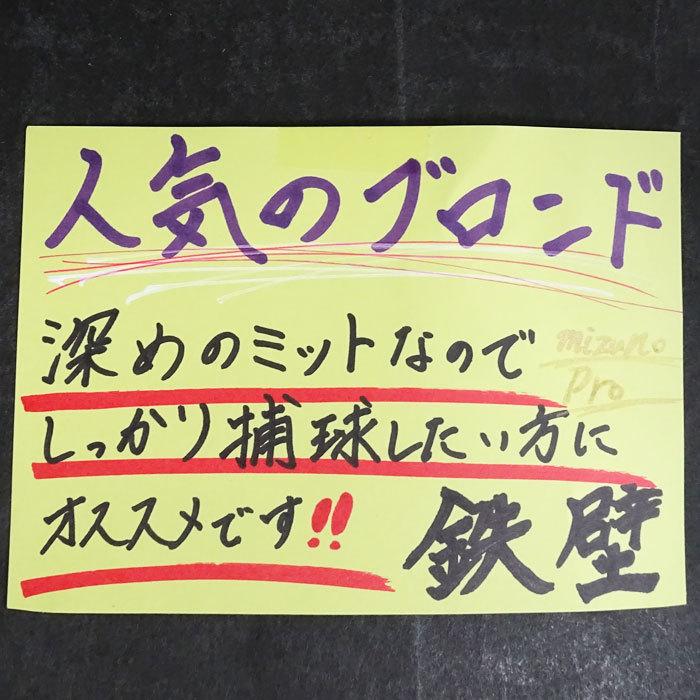 人気のブロンド
深めのミットなので
mizuno
pro
しっかり捕球したい方に
オススメです!!
鉄壁